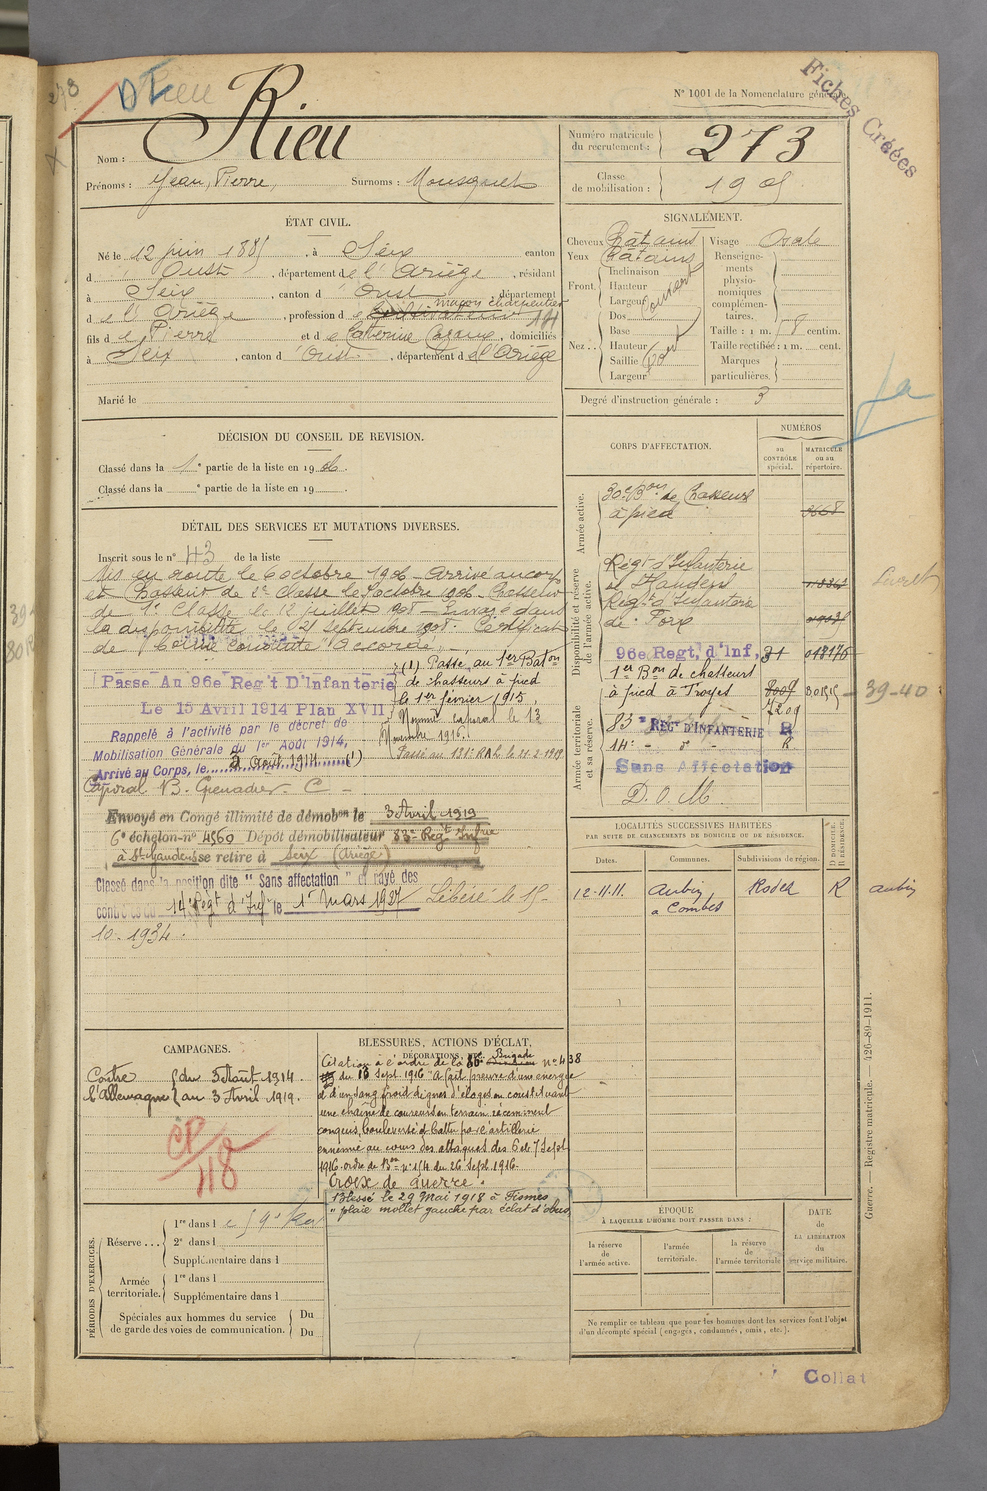 278
Rieu
Fiches Créées
N° 1001 de la Nomenclature générale
Nom : Rieu
Prénoms : Jean, Pierre, Surnoms : Mousquet
Numéro matricule du recrutement : 273
Classe de mobilisation : 1905
ÉTAT CIVIL.
Né le 12 juin 1885, à Seix canton
d Oust, département de l'Ariège, résidant
à Seix, canton d'Oust, département
maçon charpentier
de l'Ariège, profession de cultivateur
fils de Pierre et de Catherine Cazaux, domiciliés
à Seix, canton d'Oust, département de l'Ariège
Marié le
SIGNALEMENT.
Cheveux châtains Visage Ovale
Yeux châtains
Renseignements physionomiques complémentaires.
Front.
Inclinaison
Hauteur
Largeur
couvert
Nez..
Dos
Base
Hauteur
Saillie
Largeur
Taille : 1 m. 58 centim.
Taille rectifiée : 1 m. cent.
Marques particulières.
Degré d'instruction générale : 3
DÉCISION DU CONSEIL DE REVISION.
Classé dans la 1e partie de la liste en 1906.
Classé dans la e partie de la liste en 19
DÉTAIL DES SERVICES ET MUTATIONS DIVERSES.
Inscrit sous le n° 43 de la liste
Mis en route le 6 octobre 1906 - Arrivé au corps
et Chasseur de 2e classe le 8 octobre 1906. Chasseur
de 1e Classe le 12 juillet 1908 - Envoyé dans
la disponibilité le 21 septembre 1908. Certificat
de bonne conduite "Accordé" -
(1) Passé au 1er Baton
de chasseurs à pied
le 1er février 1915.
Nommé caporal le 13
Novembre 1916.
Passé au 131e RAL le 21-2-1919
Passe Au 96e Reg't D'Infanterie
Le 15 Avril 1914 Plan XVII
Rappelé à l'activité par le décret de
Mobilisation Générale du 1er Août 1914,
Arrivé au Corps, le 3 Août 1914 (1)
Caporal B. Grenadier C -
Envoyé en Congé illimité de démobon le 3 Avril 1919
6e échelon n° 4560 Dépôt démobilisateur 83e Regt Infrie
à St Gaudens se retire à Seix (Ariège)
Classé dans la position dite "Sans affectation" et rayé des
contrôles du 14 Regt d'Inf le 1r Mars 1927 Libéré le 15-
10-1934.
CORPS D'AFFECTATION.
NUMÉROS
au CONTRÔLE spécial.
MATRICULE ou au répertoire.
Armée active.
30e Bon de Chasseurs
à pied 3668
Disponibilité et réserve de l'armée active.
Régt d'Infanterie
St Gaudens
Régt d'Infanterie
de Foix
96e Regt, d'Inf, 31 018176
1er Bon de chasseurs
à pied à Troyes
7209
39-40
Armée territoriale et sa réserve.
83e REGt D'INFANTERIE R
14e - do - R
Sans Affectation
D. O. M.
LOCALITÉS SUCCESSIVES HABITÉES
PAR SUITE DE CHANGEMENTS DE DOMICILE OU DE RÉSIDENCE.
D DOMICILE.
R RÉSIDENCE.
Dates. Communes. Subdivisions de région.
12-11-11. Aubin Rodez R Aubin
a Combes
CAMPAGNES.
Contre l'Allemagne
du 3 Août 1914.
au 3 Avril 1919.
CP
48
BLESSURES, ACTIONS D'ÉCLAT,
DÉCORATIONS, ETC.
Citation à l'ordre de la Brigade n° 438
du 16 Sept. 1916 "A fait preuve d'une énergie
et d'un sang froid dignes d'éloges en constituant
une chaîne de coureurs en terrain récemment
conquis, bouleversé et battu par l'artillerie
ennemie au cours des attaques des 6 et 7 Sept
1916. ordre du Bon n° 154 du 26 Sept. 1916.
Croix de Guerre.
Blessé le 29 Mai 1918 à Fismes
"plaie mollet gauche par éclat d'obus"
PÉRIODES D'EXERCICES.
Réserve...
1re dans le 59e
2e dans l
Supplémentaire dans l
Armée territoriale.
1re dans l
Supplémentaire dans l
Spéciales aux hommes du service de garde des voies de communication.
Du
Du
ÉPOQUE
À LAQUELLE L'HOMME DOIT PASSER DANS :
la réserve de l'armée active.
l'armée territoriale.
la réserve de l'armée territoriale
DATE de LA LIBÉRATION du service militaire.
Ne remplir ce tableau que pour les hommes dont les services font l'objet
d'un décompte spécial (engagés, condamnés, omis, etc.).
Guerre. — Registre matricule. — 426-89-1911.
Collat